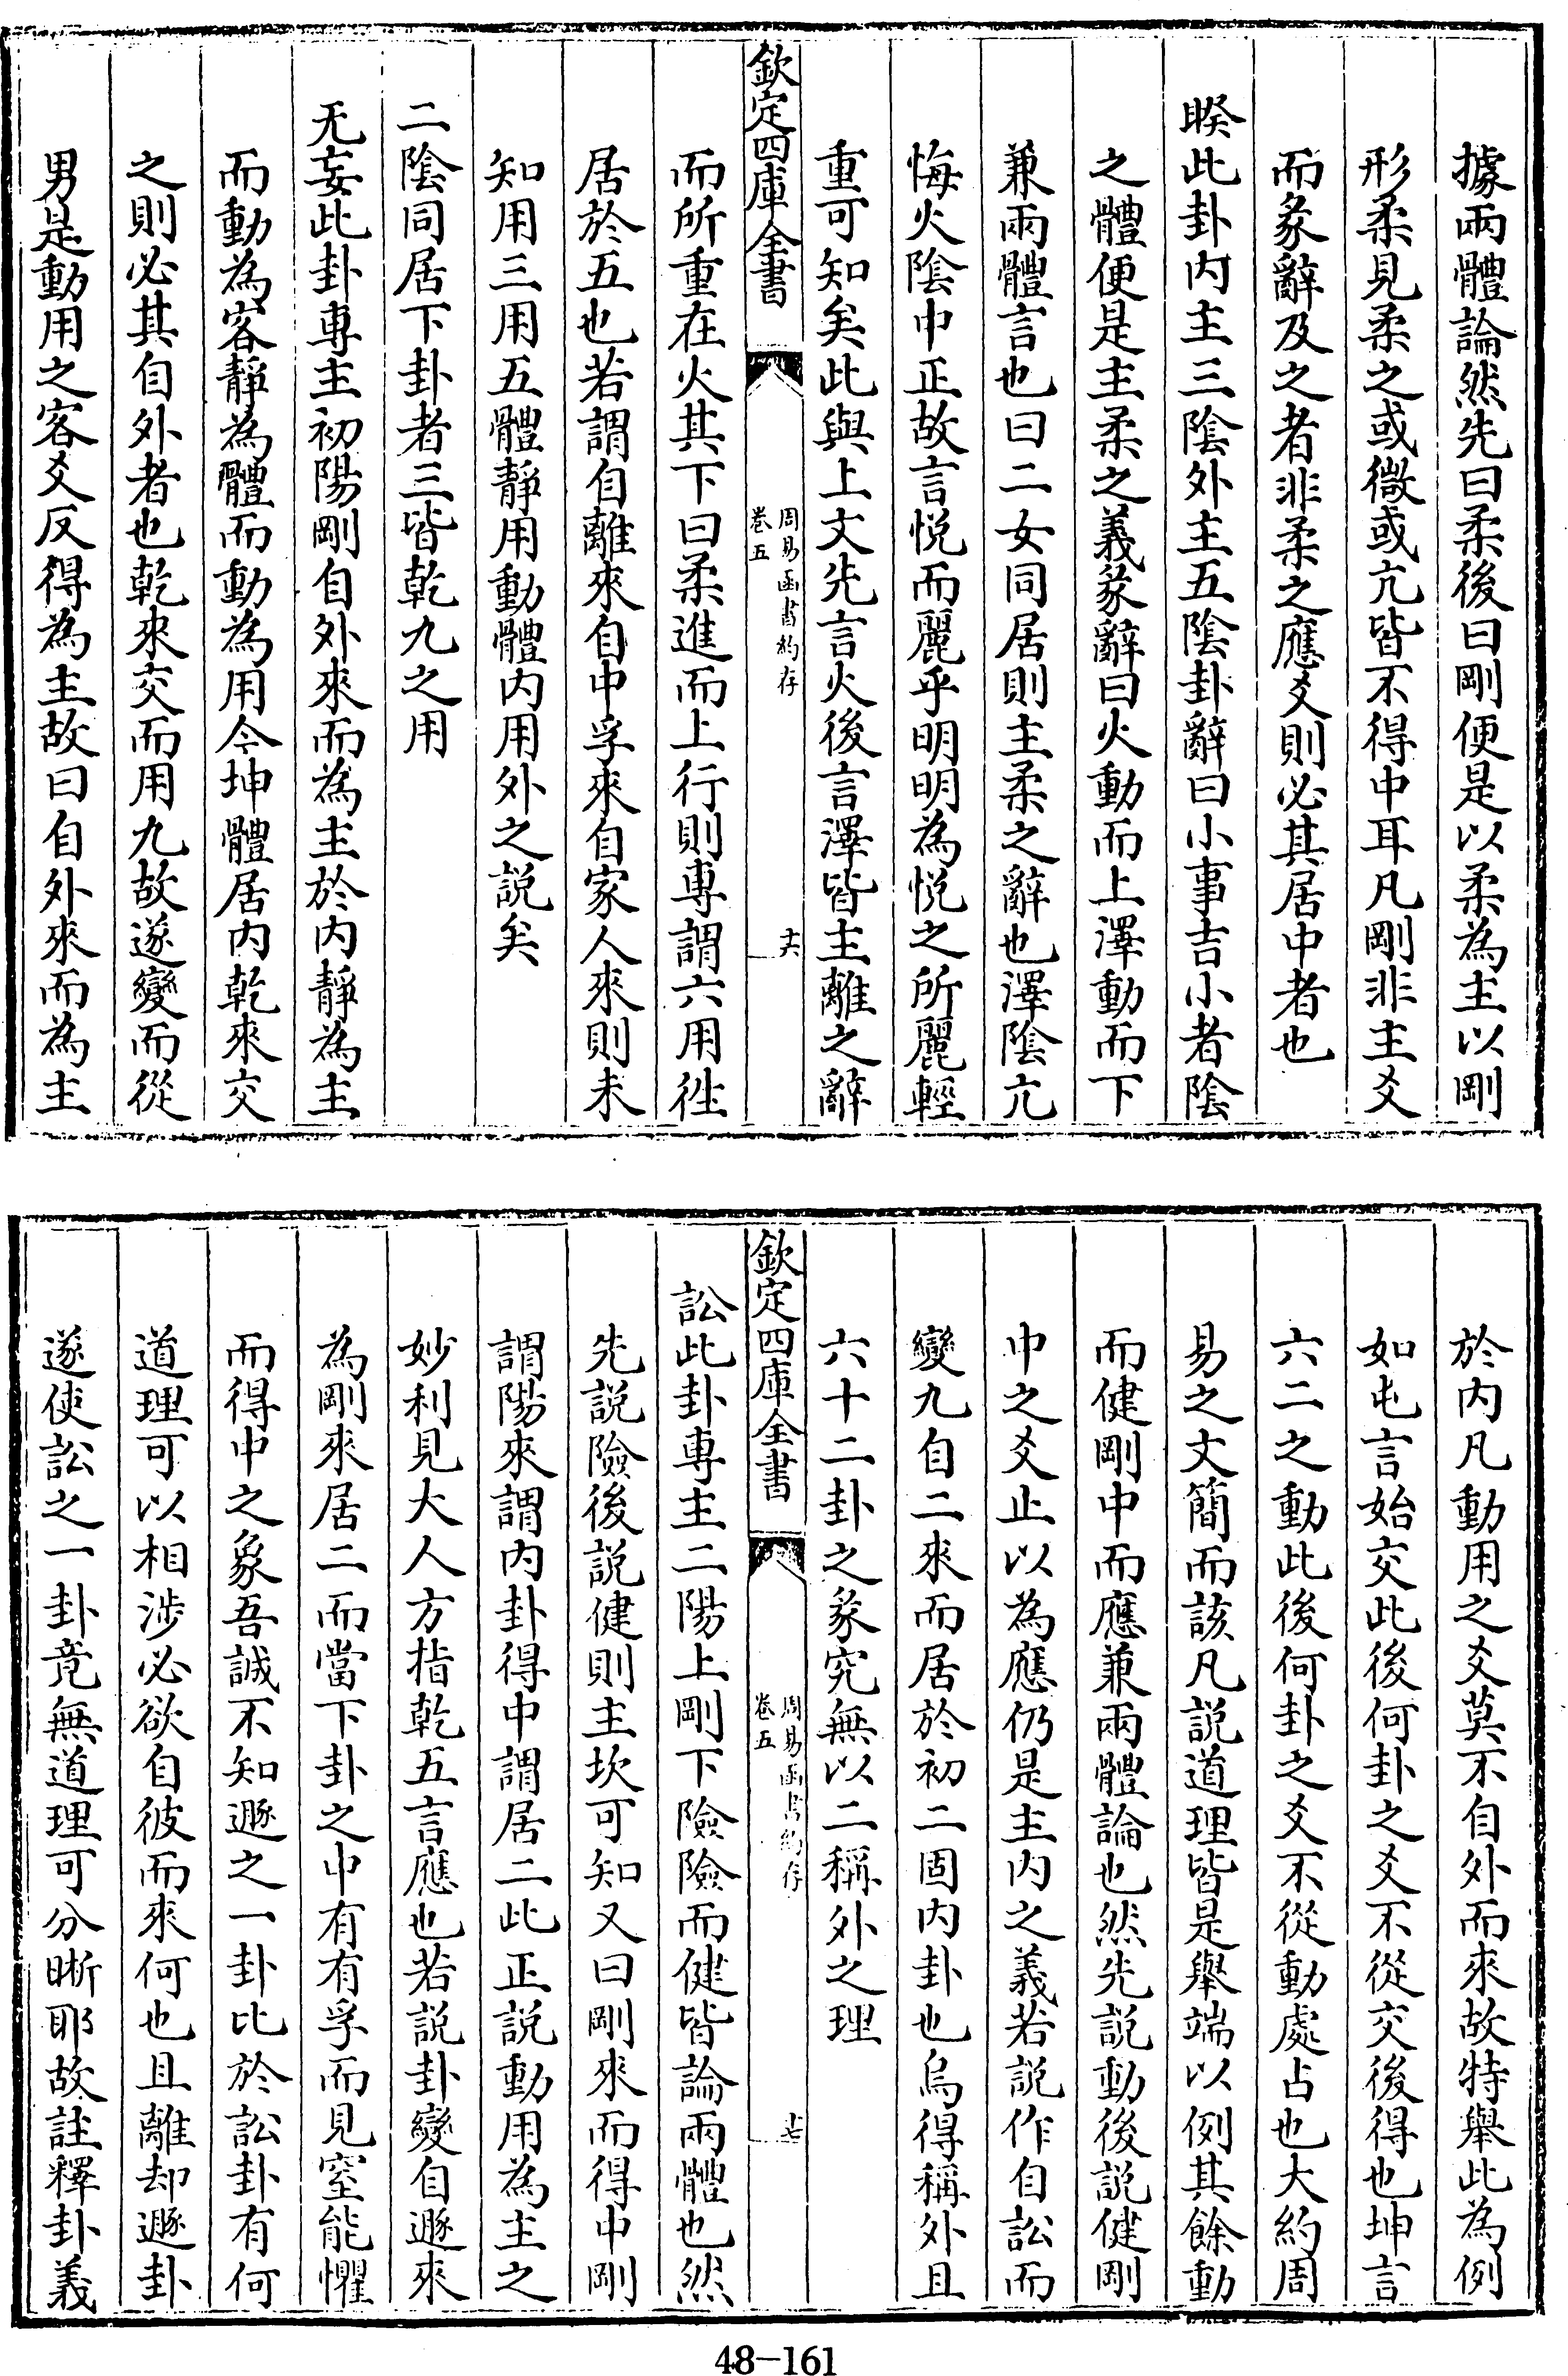 據兩體論然先曰柔後曰剛便是以柔為主以剛
形柔見柔之或微或亢皆不得中耳凡剛非主爻
而彖辭及之者非柔之應爻則必其居中者也
睽此卦内主三陰外主五陰卦辭曰小事吉小者陰
之體便是主柔之義彖辭曰火動而上澤動而下
兼兩體言也曰二女同居則主柔之辭也澤陰亢
悔火陰中正故言悦而麗乎明明為悦之所麗輕
重可知矣此與上文先言火後言澤皆主離之辭
欽定四庫全書
周易函書約存
卷五
十六
而所重在火其下曰柔進而上行則專謂六用徃
居於五也若謂自離來自中孚來自家人來則未
知用三用五體靜用動體内用外之説矣
二陰同居下卦者三皆乾九之用
无妄此卦專主初陽剛自外來而為主於内靜為主
而動為客靜為體而動為用今坤體居内乾來交
之則必其自外者也乾來交而用九故遂變而從
男是動用之客爻反得為主故曰自外來而為主
於内凡動用之爻莫不自外而來故特舉此為例
如屯言始交此後何卦之爻不從交後得也坤言
六二之動此後何卦之爻不從動處占也大約周
易之文簡而該凡説道理皆是舉端以例其餘動
而健剛中而應兼兩體論也然先説動後説健剛
中之爻止以為應仍是主内之義若説作自訟而
變九自二來而居於初二固内卦也烏得稱外且
六十二卦之彖究無以二稱外之理
欽定四庫全書
周易函書約存
卷五
十七
訟此卦專主二陽上剛下險險而健皆論兩體也然
先説險後説健則主坎可知又曰剛來而得中剛
謂陽來謂内卦得中謂居二此正説動用為主之
妙利見大人方指乾五言應也若説卦變自遯來
為剛來居二而當下卦之中有有孚而見窒能懼
而得中之象吾誠不知遯之一卦比於訟卦有何
道理可以相涉必欲自彼而來何也且離却遯卦
遂使訟之一卦竟無道理可分晰耶故註釋卦義
48-161